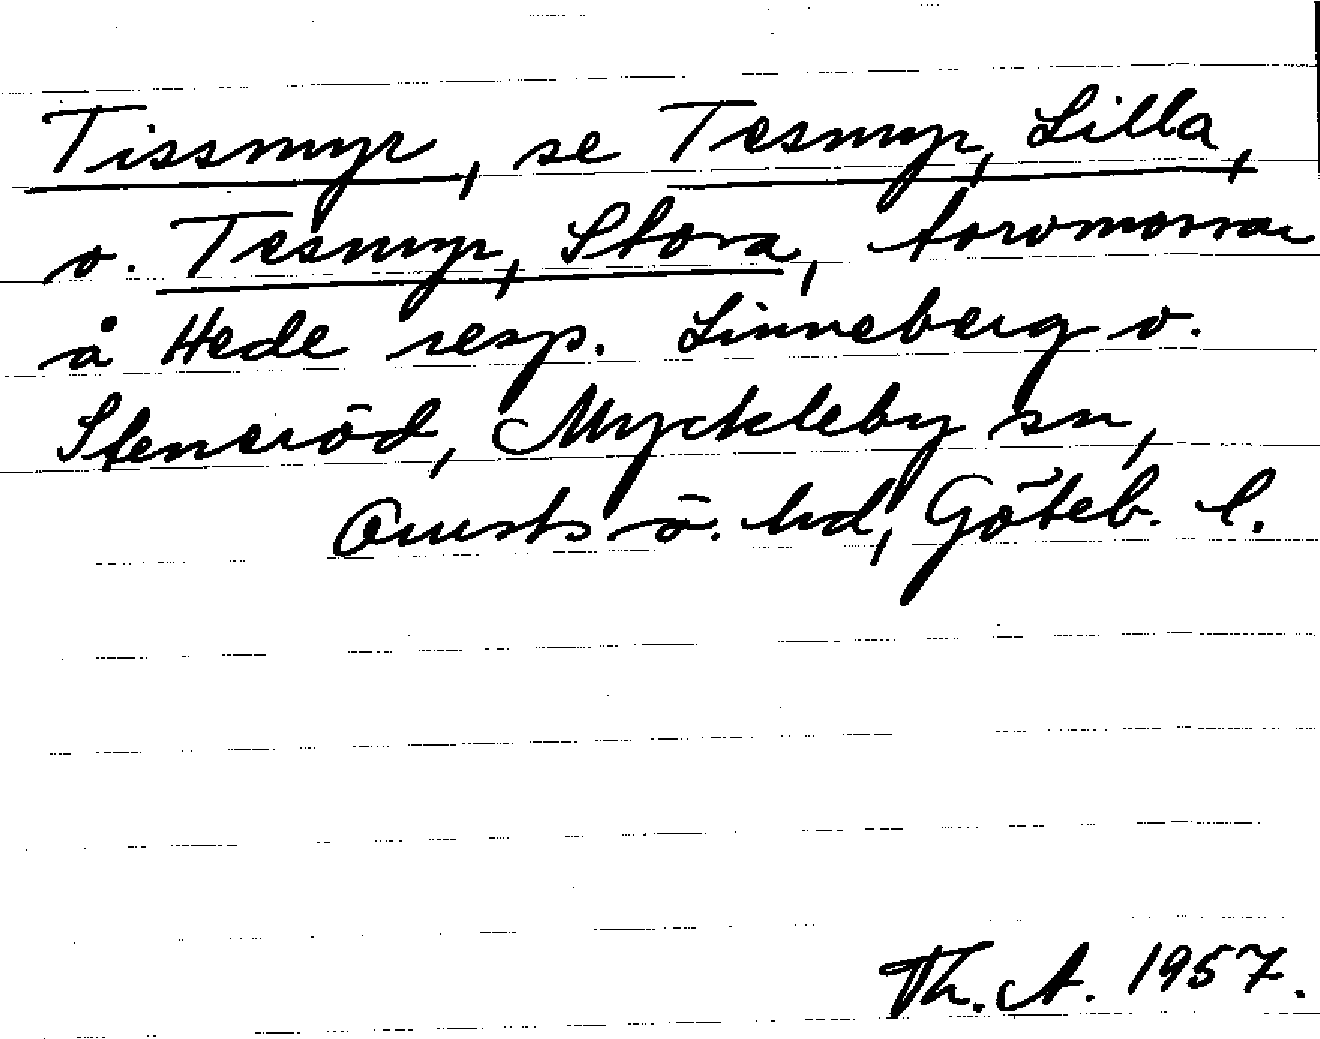 Tissmyr, se Tesmyr, Lilla,
o. Tesmyr, Stora, torvmossar
å Hede resp. Linneberg o.
Steneröd, Myckleby sn,
Orusts ö. hd, Göteb. l.
Th. A. 1957.